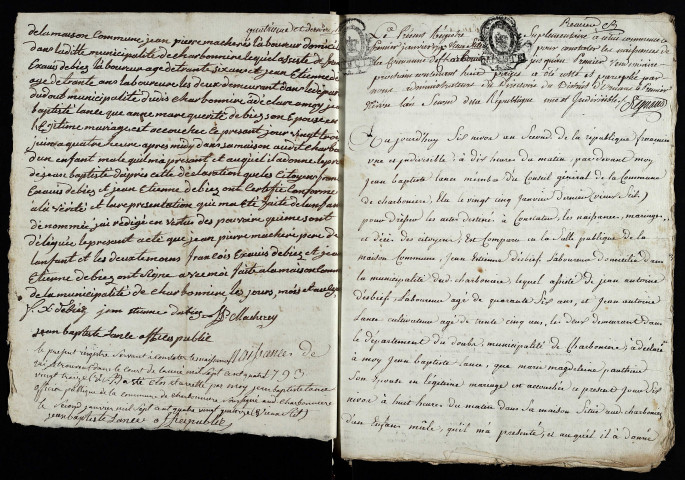 quinzieme et dernier
de la maison commune, jean pierre macherey laboureur domicilié
dans laditte municipalité de charbonniere lequel assisté de francois
Exavis debiez laboureur age de trente six ans et jean Etienne de
age de trante ans laboureur les deux demeurant dans le département
du doub municipalité de charbonniere a declare a moy jean
baptiste lance que marguerite debiez son Epouse en
legitime mariage est accouchee le present jour vingt trois
a quatre heure apres midy dans sa maison audit charbonniere
d'un enfant mâle quil ma présent et auquel il a donné le prenom
de jean baptiste d'après cette déclaration que les Citoyens francois
Exavis debiez et jean Etienne debiez ont Certifié conforme
a la Vérité et la representation qui ma été faite de lanfant
denommée, j'ai rédigé en vertus des pouvoirs qui me sont
délégués le present acte que jean pierre macherey pere de
lanfant et les deux temoins francois Exavis debiez et jean
Etienne debiez ont signé avec moi fait à la maison commune
de la municipalité de charbonniere les jours, mois et an
f. X. debiez jean etienne debiez J P Macherey
jean baptiste lance officier public
le present régistre servant a constater les naissances de
dans le cours de lannée mil sept cent 1793
a été clos et arretté par moy jean baptiste lance
officier publique de la commune de charbonniere
le second janvier mil sept cent quatre vingt quatorze (vieux stile)
jean baptiste lance officier public
Premier
Le présent Régistre Suplementaire a celui commencé le
premier janvier 1793 pour constater les naissances de
la commune de Charbonniere jusqu'au premier Vendemiaire
prochain contenant huit pages a été cotté et paraphé par
nous administrateur du Directoire du District d'Ornans le premier
Nivose l'an Second de la République une et Indivisible
Aujourd'huy Six nivose an Second de la republique francaise
une et indivisible a dix heures du matin, par devant moy
jean baptiste lance membre du Conseil général de la Commune
de charbonniere, Elu le vingt cinq Janvier dernier (vieux stile)
pour Dresser les actes destinés à Constater les naissances, mariages
et décés des citoyens, Est Comparu en la Salle publique de la
maison Commune, Jean Etienne debief Laboureur domicilié dans
la municipalité dud. charbonniere, lequel assisté de jean antoine
debief Laboureur agé de quarante Six ans, et jean antoine
lance cultivateur agé de trente cinq ans, les deux demeurant dans
le département du doubs, municipalité de Charbonniere; a déclaré
à moy jean Baptiste Lance, que marie magdeleine
Son Epouse en legitime mariage est accouchée ce present jour Six
nivose à huit heures du matin dans Sa maison Située aud charbonniere
d'un Enfant mâle, qu'il ma présenté, et auquel il à donné